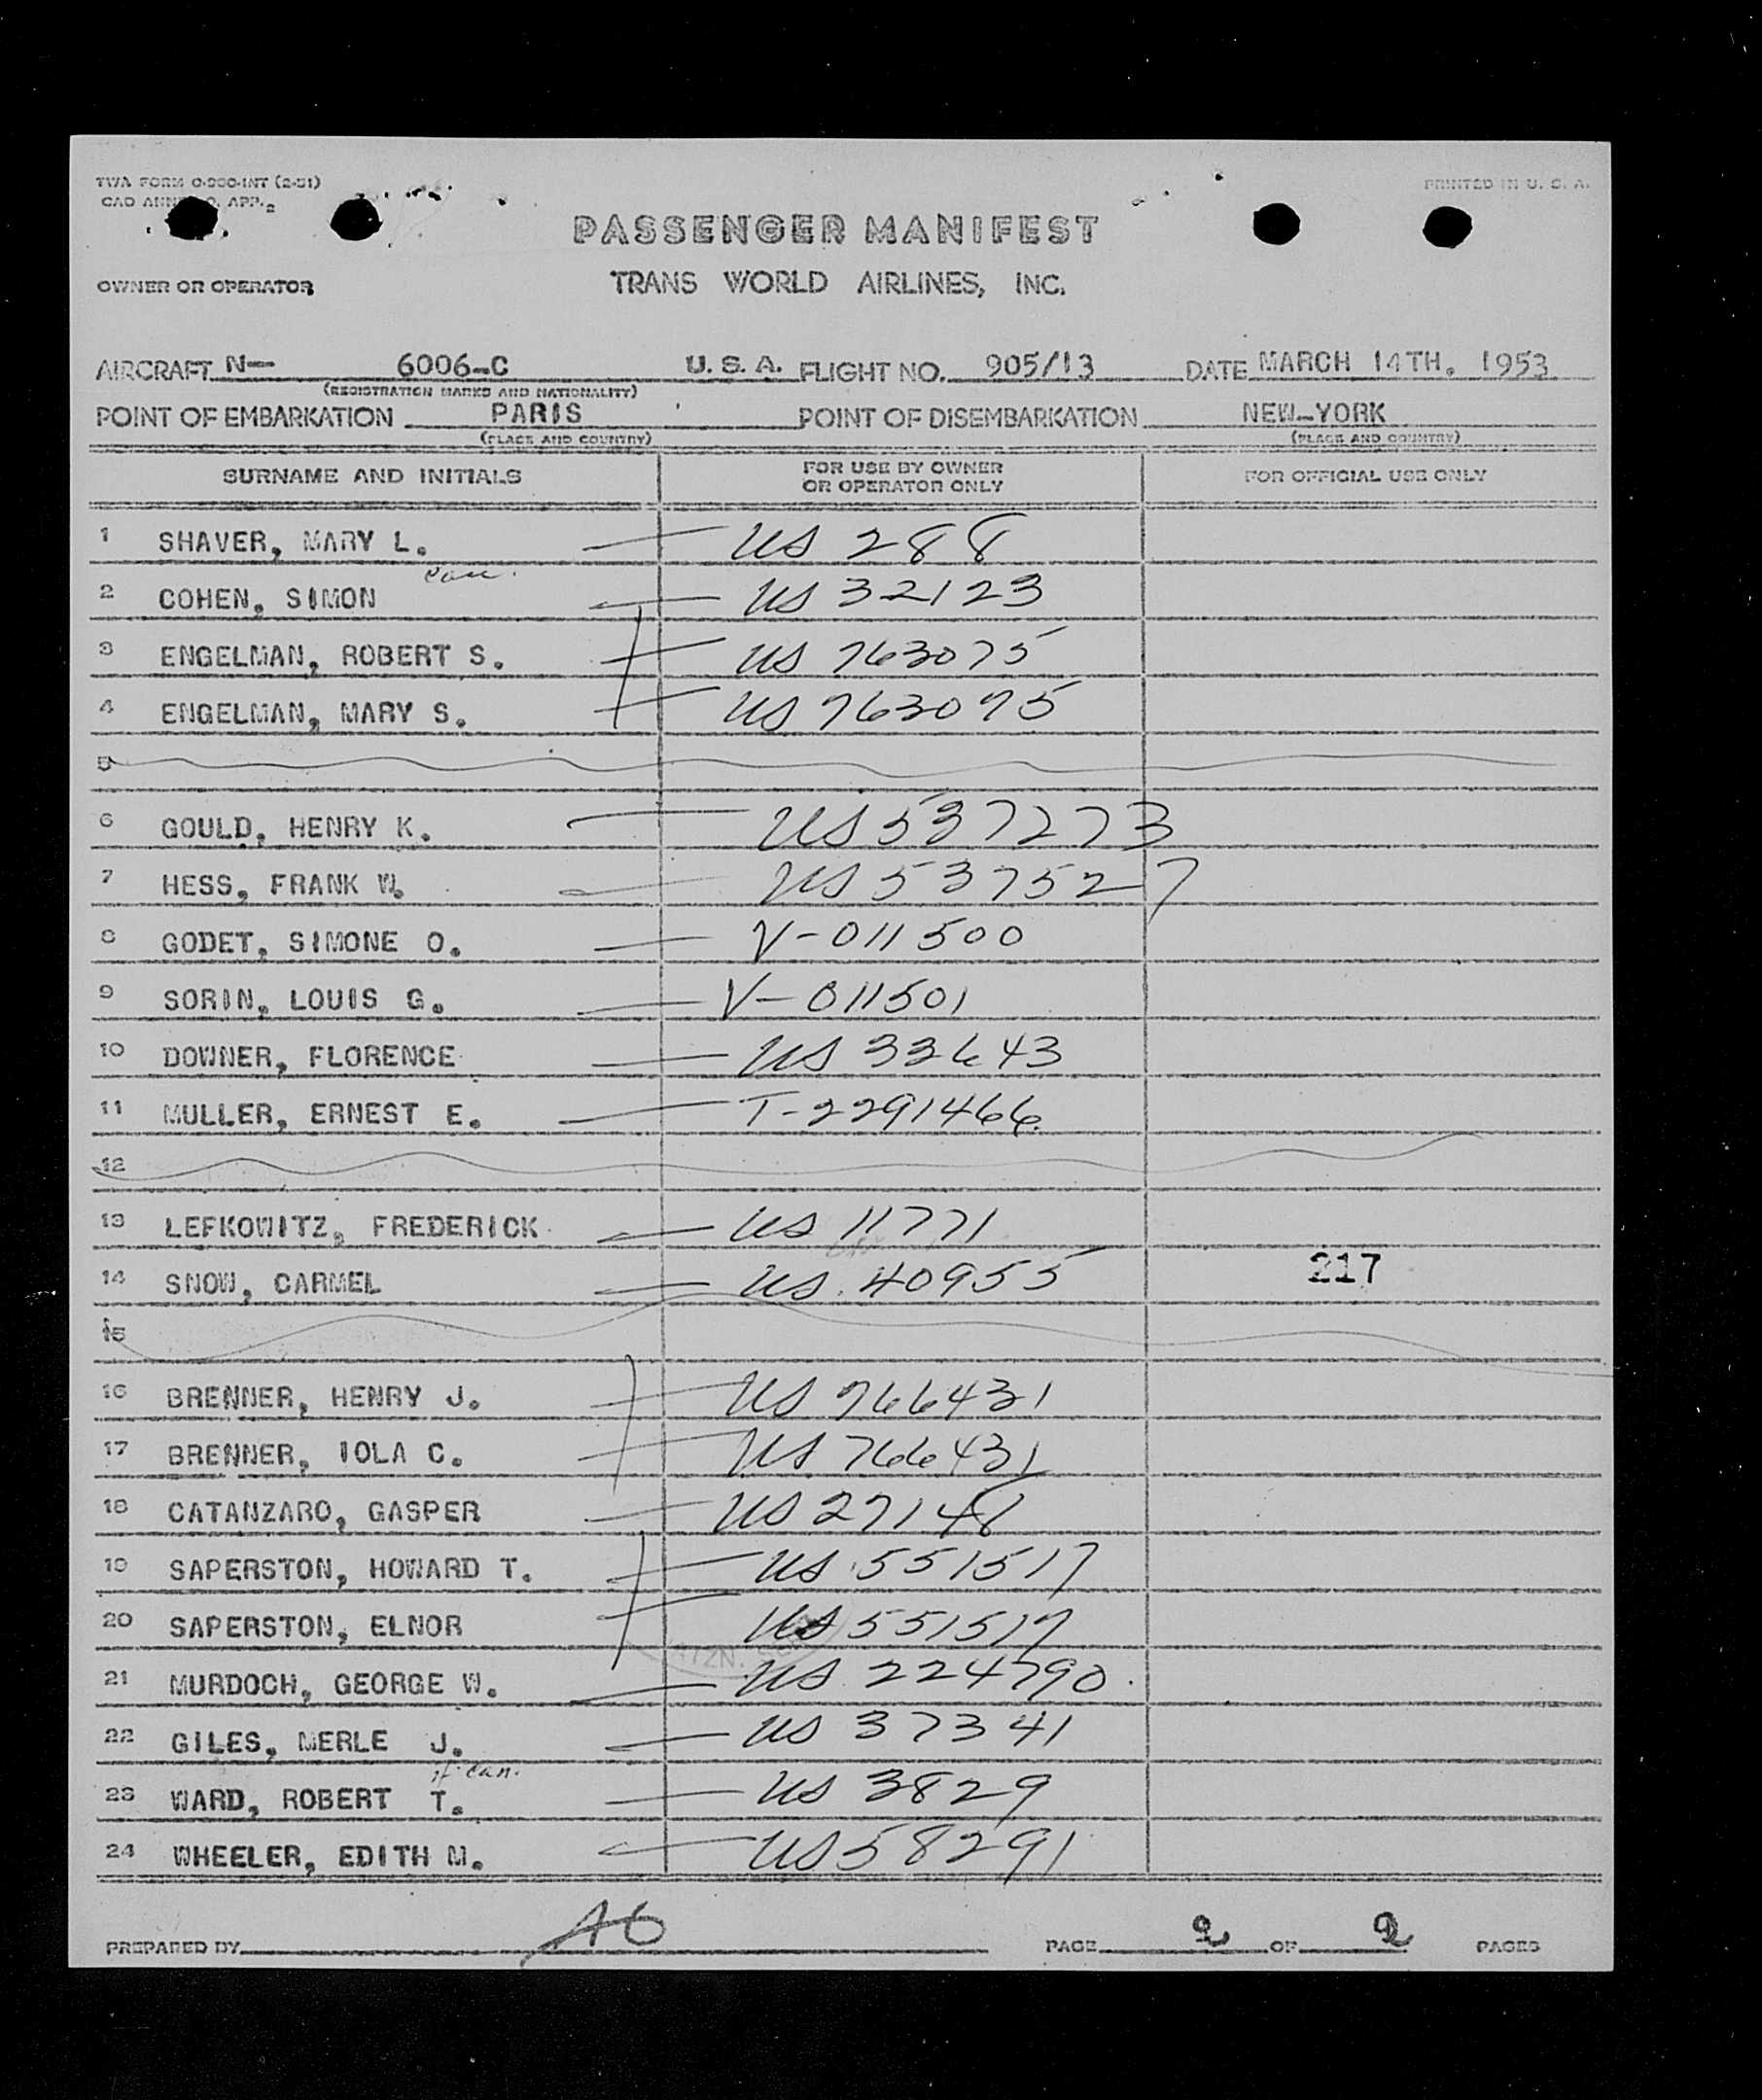 TWA FORM O-900-INT (2-51)
PRINTED IN U. S. A.
CAO ANNEX 9, APP. 2
PASSENGER MANIFEST
OWNER OR OPERATOR
TRANS WORLD AIRLINES, INC.
AIRCRAFT N— 6006-C U. S. A. FLIGHT NO. 905/13 DATE MARCH 14TH. 1953
(REGISTRATION MARKS AND NATIONALITY)
POINT OF EMBARKATION PARIS POINT OF DISEMBARKATION NEW-YORK
(PLACE AND COUNTRY) (PLACE AND COUNTRY)
SURNAME AND INITIALS FOR USE BY OWNER OR OPERATOR ONLY FOR OFFICIAL USE ONLY
1 SHAVER, MARY L. — US 288
can.
2 COHEN, SIMON — US 32123
3 ENGELMAN, ROBERT S. — US 763075
4 ENGELMAN, MARY S. — US 763075
5
6 GOULD, HENRY K. — US 537273
7 HESS, FRANK W. — US 537527
8 GODET, SIMONE O. — V-011500
9 SORIN, LOUIS G. — V-011501
10 DOWNER, FLORENCE — US 33643
11 MULLER, ERNEST E. — T-2291466
12
13 LEFKOWITZ, FREDERICK — US 11771
14 SNOW, CARMEL — US 40955 217
15
16 BRENNER, HENRY J. — US 766431
17 BRENNER, IOLA C. — US 766431
18 CATANZARO, GASPER — US 27148
19 SAPERSTON, HOWARD T. — US 551517
20 SAPERSTON, ELNOR — US 551517
21 MURDOCH, GEORGE W. — US 224790
22 GILES, MERLE J. — US 37341
if can.
23 WARD, ROBERT T. — US 3829
24 WHEELER, EDITH M. — US 58291
PREPARED BY PAGE 2 OF 2 PAGES